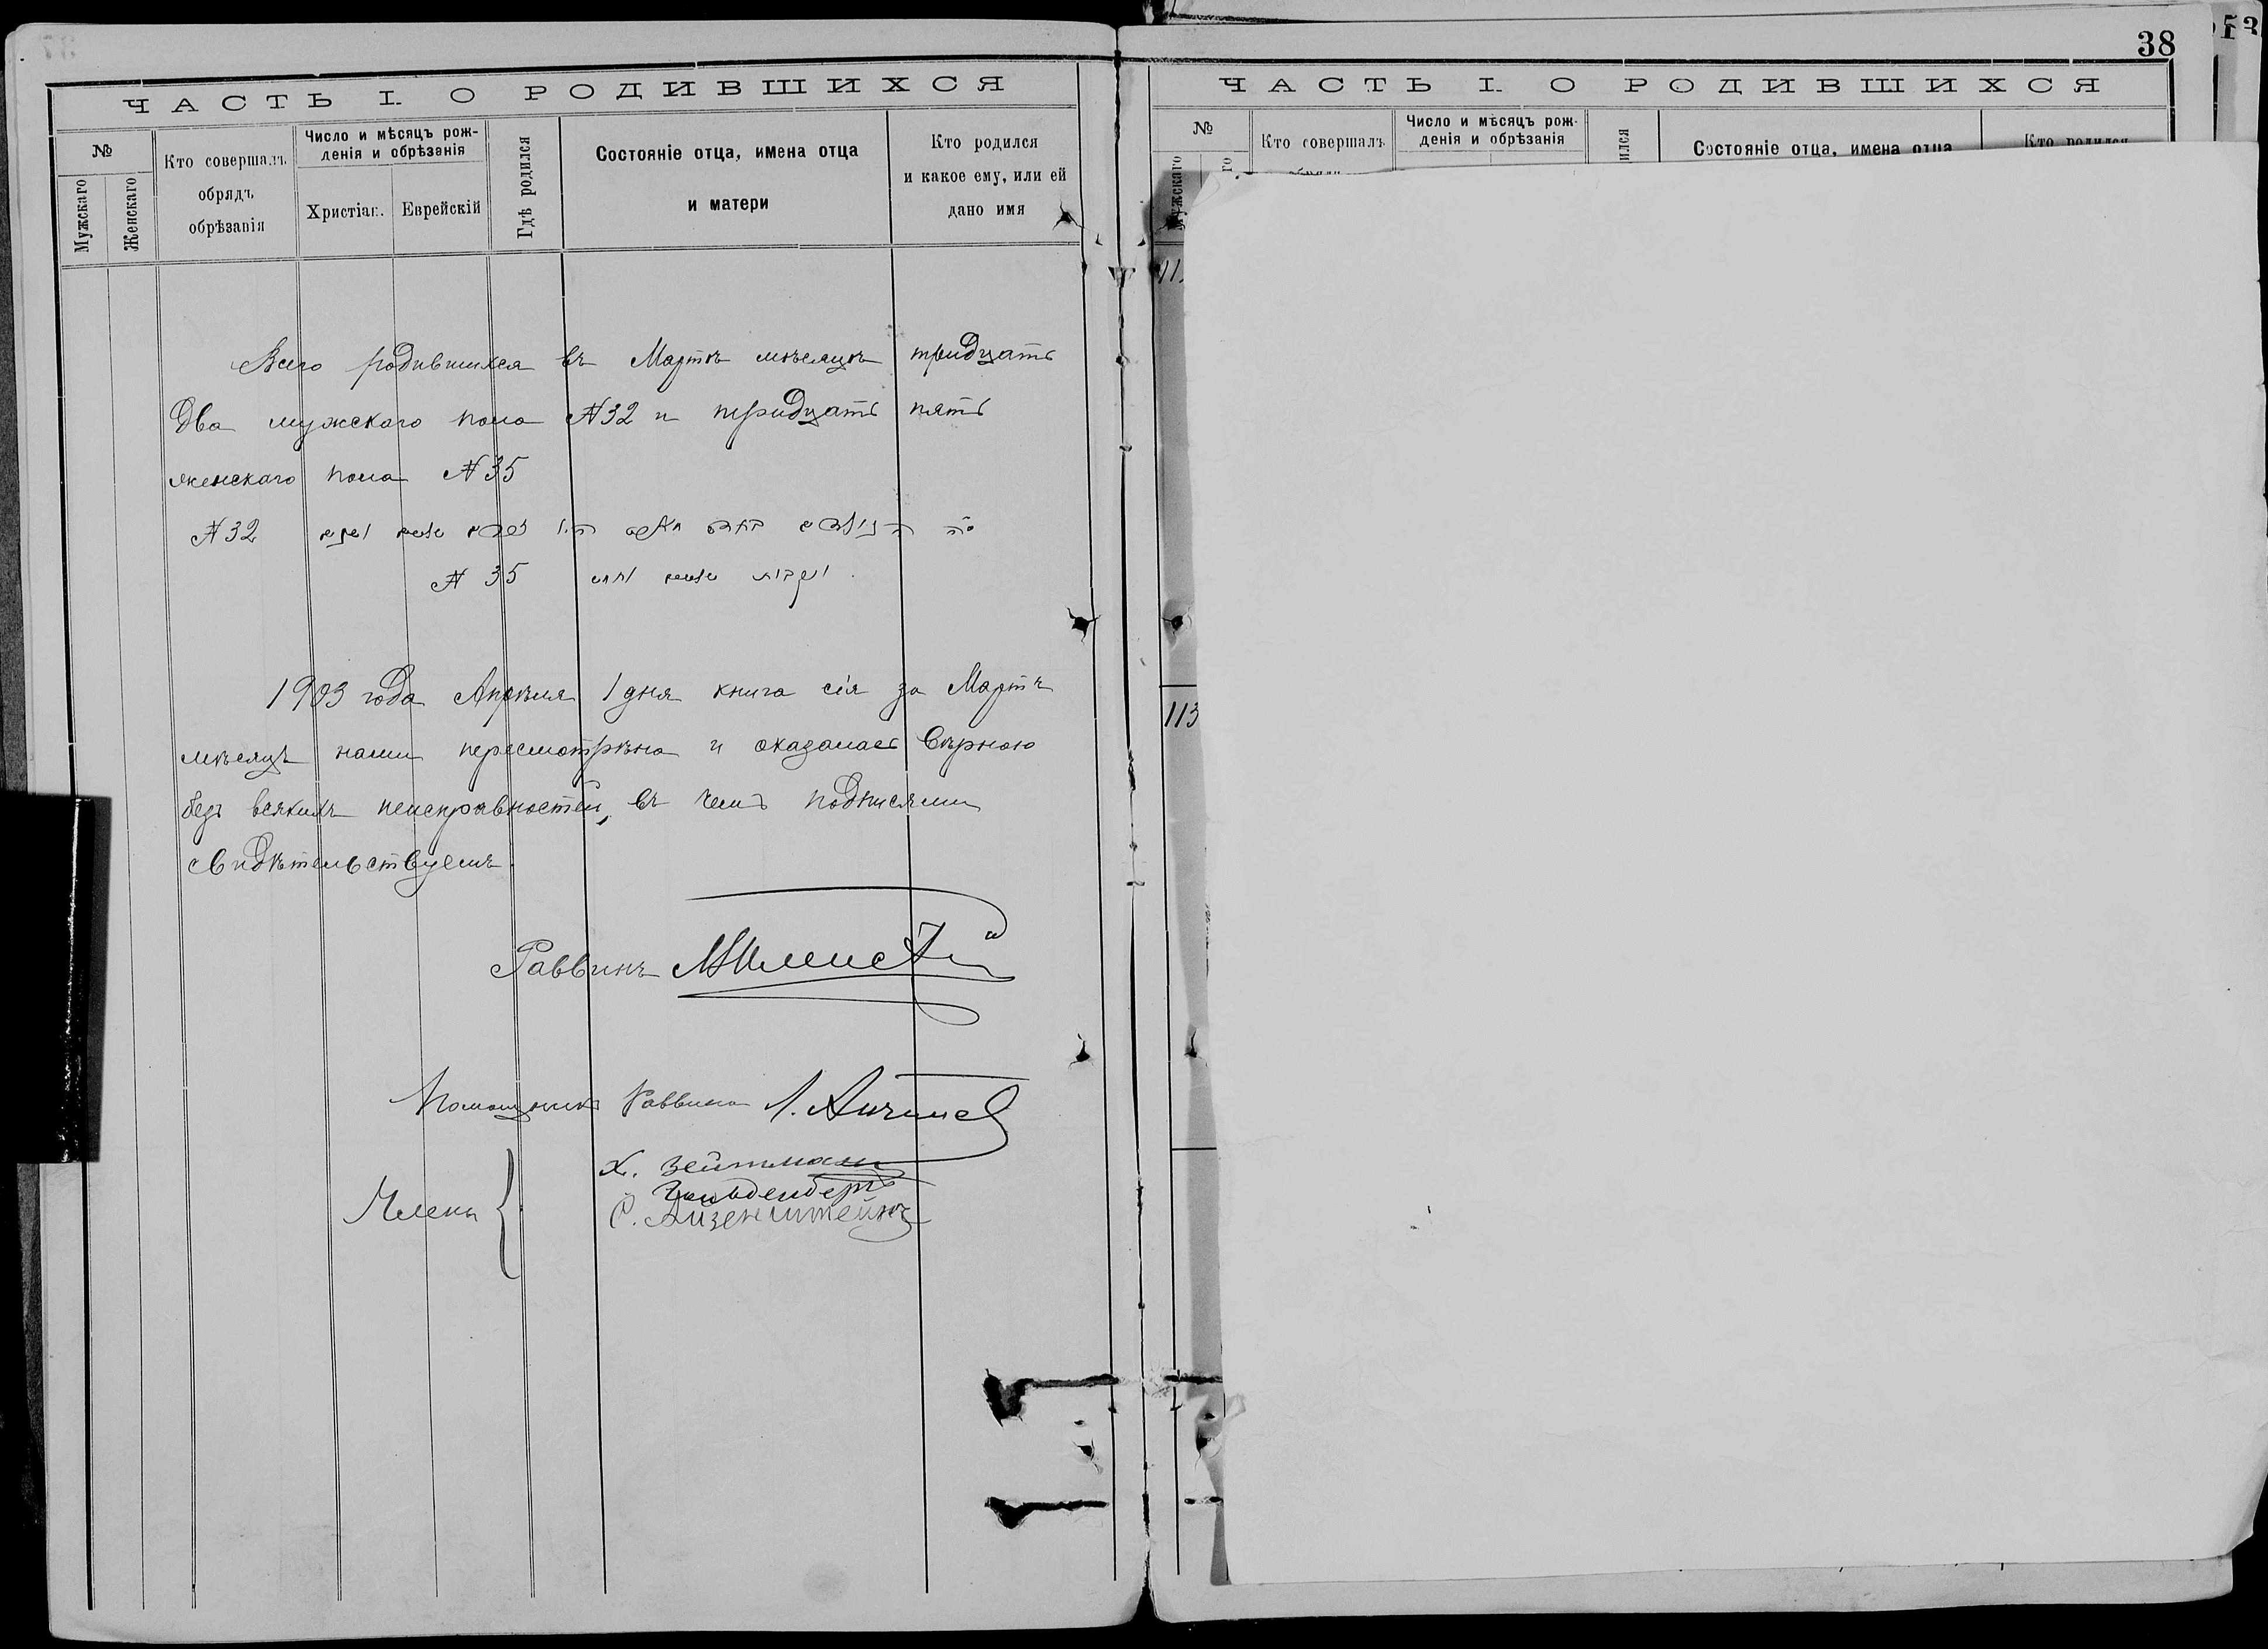 ЧАСТЬ I. О РОДИВШИХСЯ
№
Мужскаго
Женскаго
Кто совершалъ
обрядъ
обрѣзанія
Число и мѣсяцъ рож-
денія и обрѣзанія
Христіан.
Еврейскій
Гдѣ родился
Состояніе отца, имена отца
и матери
Кто родился
и какое ему, или ей
дано имя
Всего родившихся въ Мартѣ мѣсяцѣ тридцать
два мужскаго пола №32 и тридцать пять
женскаго пола №35
№32
№ 35
1903 года Апрѣля 1 дня книга сія за Мартъ
мѣсяцъ нами пересмотрѣна и оказалась вѣрною
безъ всякихъ неисправностей, въ чемъ подписями
свидѣтельствуемъ.
Раввинъ
Помощникъ Раввина
Х. Зейтман
Члены
Гольденберг
Айзенштейнъ
38
ЧАСТЬ I. О РОДИВШИХСЯ
№
Мужскаго
Кто совершалъ
Число и мѣсяцъ рож-
денія и обрѣзанія
Состояніе отца, имена отца
Кто родился
113